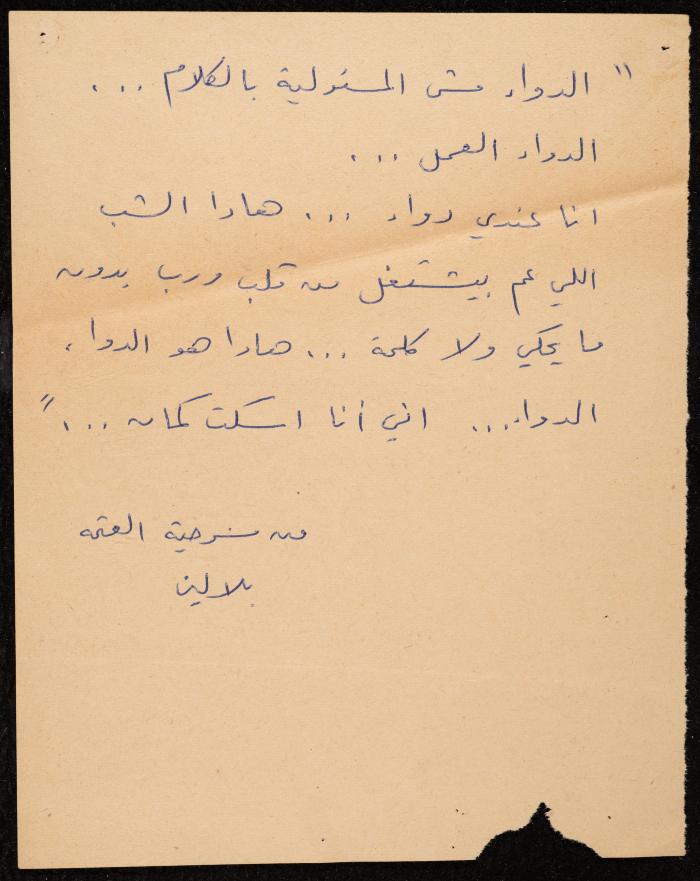 " الدواء مش المسئولية بالكلام ...
الدواء العمل ...
انا عندي دواء ... هادا الشب
اللي عم بيشتغل من قلب ورب بدون
ما يحكي ولا كلمة ... هادا هو الدواء
الدواء ... اني أنا اسكت كمان ... "
من مسرحية العتمة
بلالين